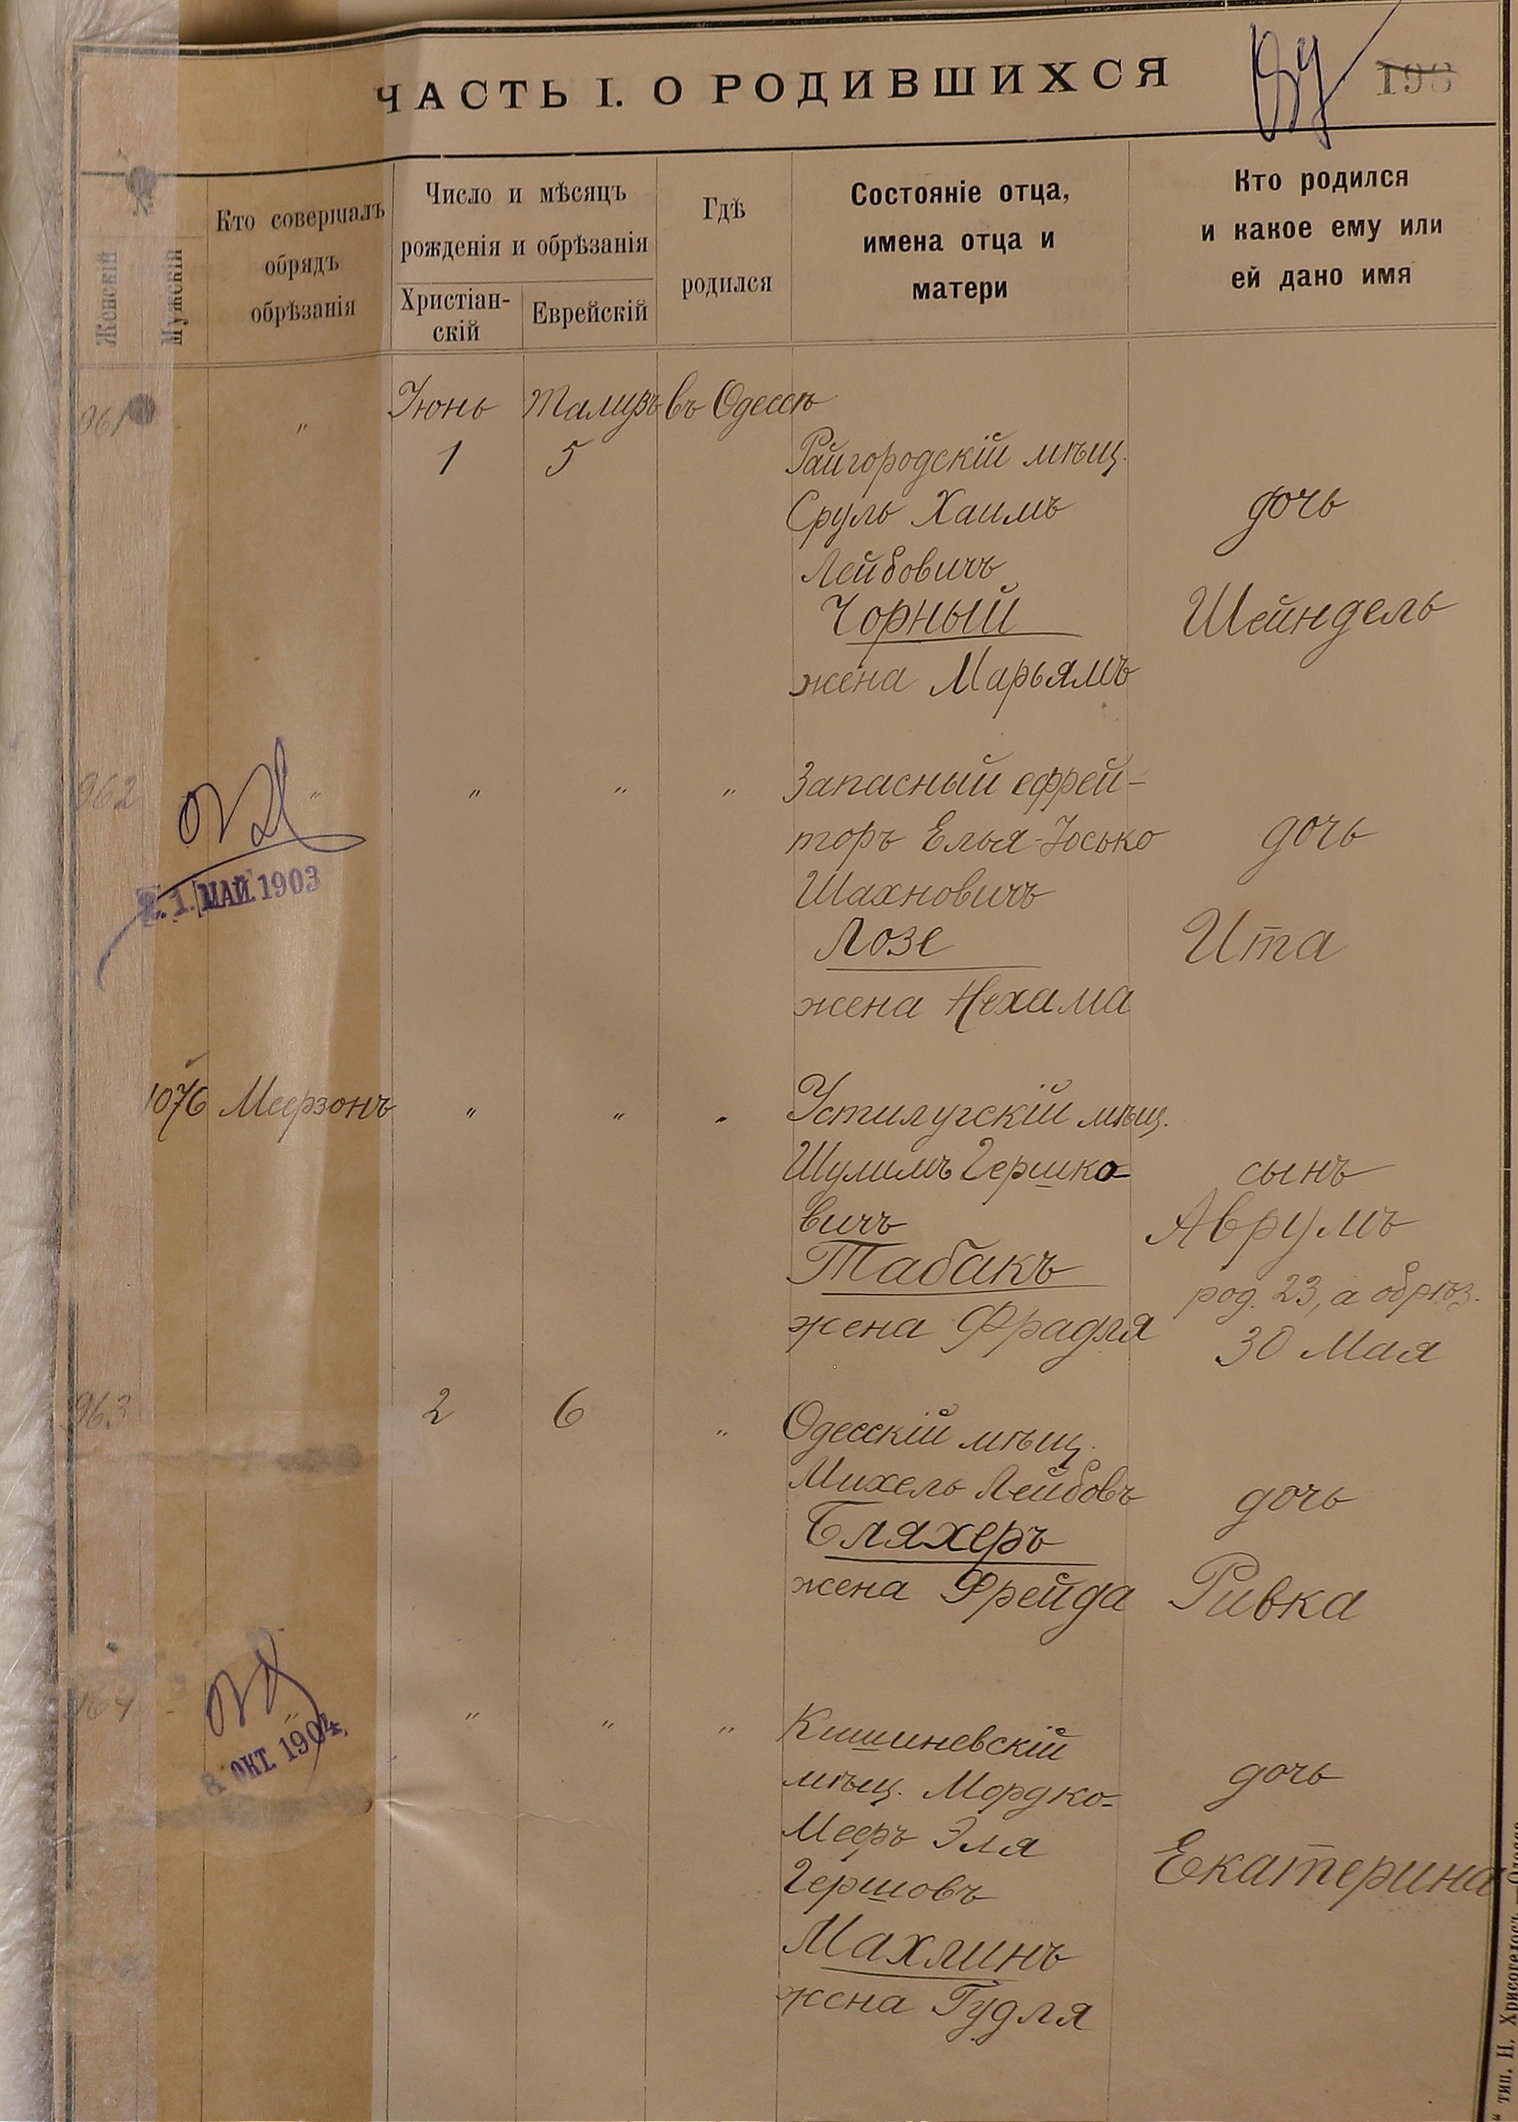 ЧАСТЬ I. О РОДИВШИХСЯ
198
№
Женскій
Мужскій
Кто совершалъ
обрядъ
обрѣзанія
Число и мѣсяцъ
рожденія и обрѣзанія
Христіан-
скій
Еврейскій
Гдѣ
родился
Состояніе отца,
имена отца и
матери
Кто родился
и какое ему или
ей дано имя
961 " Іюнь Тамузъ въ Одессѣ
1 5
Райгородскій мѣщ.
Сруль Хаимъ
Лейбовичъ
Чорный
жена Марьямъ
дочь
Шейндель
962 " " " "
2.1. МАЙ.1903
Запасный ефрей-
торъ Елья-Юсько
Шахновичъ
Лозе
жена Нехама
дочь
Ита
1076 Меерзонъ " " "
Устилугскій мѣщ.
Шулимъ Гершко-
вичъ
Табакъ
жена Фрадля
сынъ
Аврумъ
род. 23, а обрѣз.
30 Мая
963 2 6 "
Одесскій мѣщ.
Михель Лейбовъ
Бляхеръ
жена Фрейда
дочь
Ривка
964 " " " "
8 ОКТ. 1904.
Кишиневскій
мѣщ. Мордко-
Мееръ Эля
Гершовъ
Махлинъ
жена Гудля
дочь
Екатерина
тип. Н. Хрисогелосъ, Одесса